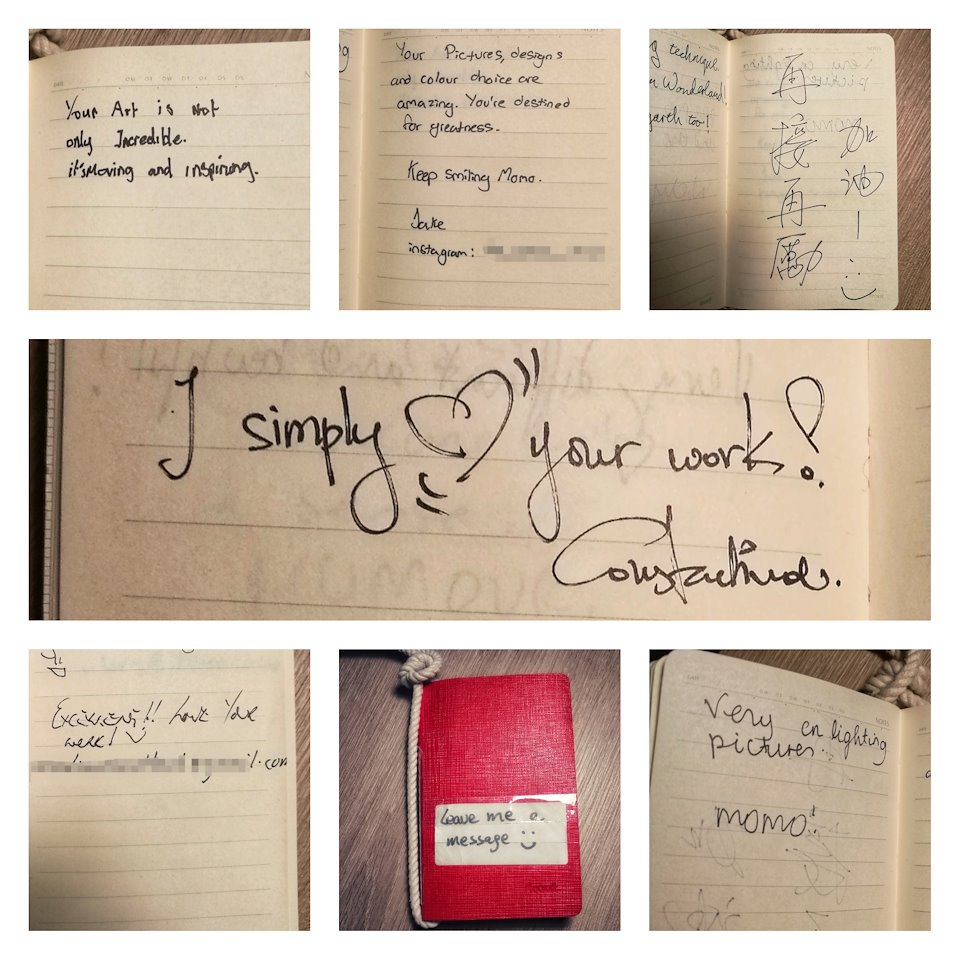 Your Art is not
only Incredible.
it's Moving and inspiring.
Your Pictures, designs
and colour choice are
amazing. You're destined
for greatness.
Keep smiling Momo.
Jake
instagram:
g technique.
Wonderland!
garth too!
加油！
再接再厲
I simply your work!
Excellent!! Love Your
work!
Leave me a
message
Very en lighting
pictures.
momo!